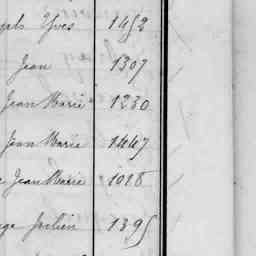 Yves 1452
Jean 1307
Jean Marie 1230
Jean Marie 1447
Jean Marie 1018
1395